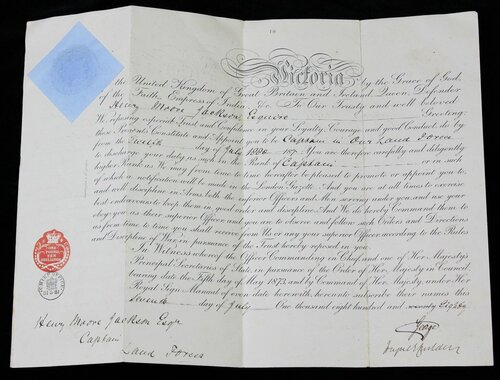 Victoria by the Grace of God,
the United Kingdom of Great Britain and Ireland, Queen, Defender
of the Faith, Empress of India, &c. To Our Trusty and well beloved
Henry Moore Jackson Esquire Greeting:
We reposing especial Trust and Confidence in your Loyalty, Courage and good Conduct, do by
these Presents Constitute and Appoint you to be Captain in Our Land Forces
from the day of July 187 . You are therefore carefully and diligently
to discharge your duty as such in the Rank of Captain or in such
higher Rank as We may from time to time hereafter be pleased to promote or appoint you to,
of which a notification will be made in the London Gazette. And you are at all times to exercise
and well discipline in Arms both the inferior Officers and Men serving under you and use your
best endeavours to keep them in good order and discipline. And We do hereby Command them to
obey you as their superior Officer and you to observe and follow such Orders and Directions
as from time to time you shall receive from Us or any your superior Officer according to the Rules
and Discipline of War, in pursuance of the Trust hereby reposed in you.
In Witness whereof the Officer Commanding in Chief and one of Her Majesty's
Principal Secretaries of State, in pursuance of the Order of Her Majesty in Council,
bearing date the Fifth day of May 1873, and by Command of Her Majesty, under Her
Royal Sign Manual of even date herewith, herewith subscribe their names this
day of July One thousand eight hundred and seventy Eighty
Henry Moore Jackson Esqr
Captain
Land Forces
George